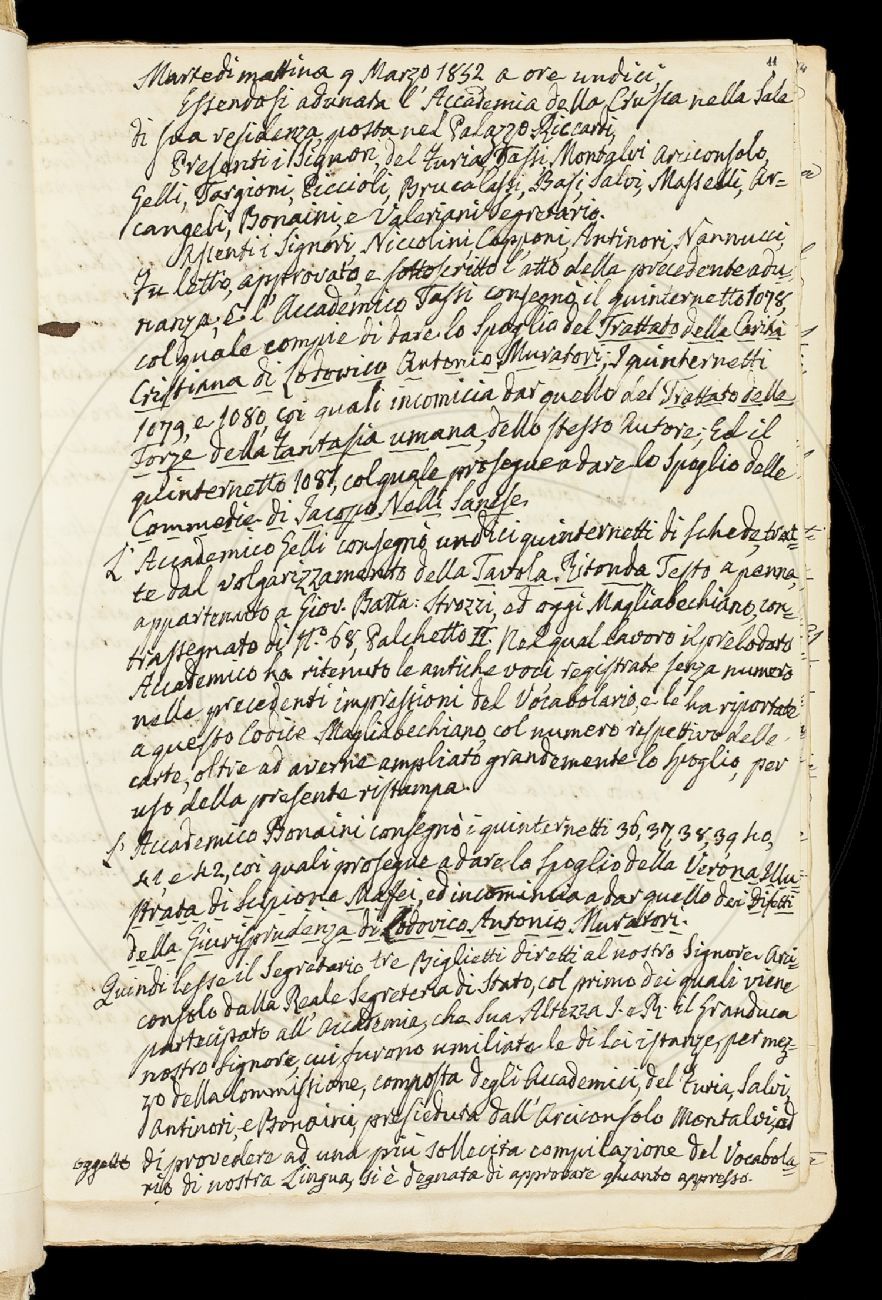 11
Martedì mattina 9 Marzo 1852 a ore undici
Essendosi adunata l'Accademia della Crusca nella Sala
di sua residenza, posta nel Palazzo Riccardi,
Presenti i Signori, del Furia, Tassi, Montalvi Arciconsolo,
Gelli, Targioni, Piccioli, Brucalassi, Basi, Salvi, Masselli, Ar=
cangeli, Bonaini, e Valeriani Segretario.
Assenti i Signori, Niccolini, Capponi, Antinori, Nannucci,
Fu letto, approvato, e sottoscritto l'atto della precedente adu,
nanza; E l'Accademico Tassi consegnò il quinternetto 1078,
col quale compie di dare lo Spoglio del Trattato della Carità
Cristiana di Lodovico Antonio Muratori; I quinternetti
1079, e 1080, coi quali incomicia dar quello del Trattato delle
Forze della Fantasia umana, dello stesso Autore; Ed il
quinternetto 1081, col quale prosegue a dare lo Spoglio delle
Commedie di Jacopo Nelli Sanese.
L'Accademico Gelli consegnò undici quinternetti di schede, trat=
te dal volgarizzamento della Tavola Ritonda Testo a penna,
appartenuto a Giov. Batta: Strozzi, ed oggi Magliabechiano, con=
trassegnato di N.° 68, Palchetto II, Nel qual lavoro il prelodato
Accademico ha ritenuto le antiche voci registrate senza numero
nelle precedenti impressioni del Vocabolario, e le ha riportate
a questo Codice Magliabechiano, col numero respettivo delle
carte, oltre ad averne ampliato grandemente lo spoglio, per
uso della presente ristampa.
L'Accademico Bonaini consegnò i quinternetti 36, 37, 38, 39, 40,
41, e 42, coi quali prosegue a dare lo Spoglio della Verona Illu=
strata di Scipione Maffei, ed incomincia a dar quello dei Difetti
della Giurisprudenza di Lodovico Antonio Muratori.
Quindi lesse il Segretario tre Biglietti diretti al nostro Signore Arci=
consolo dalla Reale Segreteria di Stato, col primo dei quali viene
partecipato all'Accademia, che Sua Altezza I. e R. il Granduca
nostro Signore, cui furono umiliate le di lei istanze, per mez=
zo della Commissione, composta degli Accademici, del Furia, Salvi,
Antinori, e Bonaini, presieduta dall'Arciconsolo Montalvi, ad
oggetto di provvedere ad una più sollecita compilazione del Vocabola=
rio di nostra Lingua, si è degnata di approvare quanto appresso.